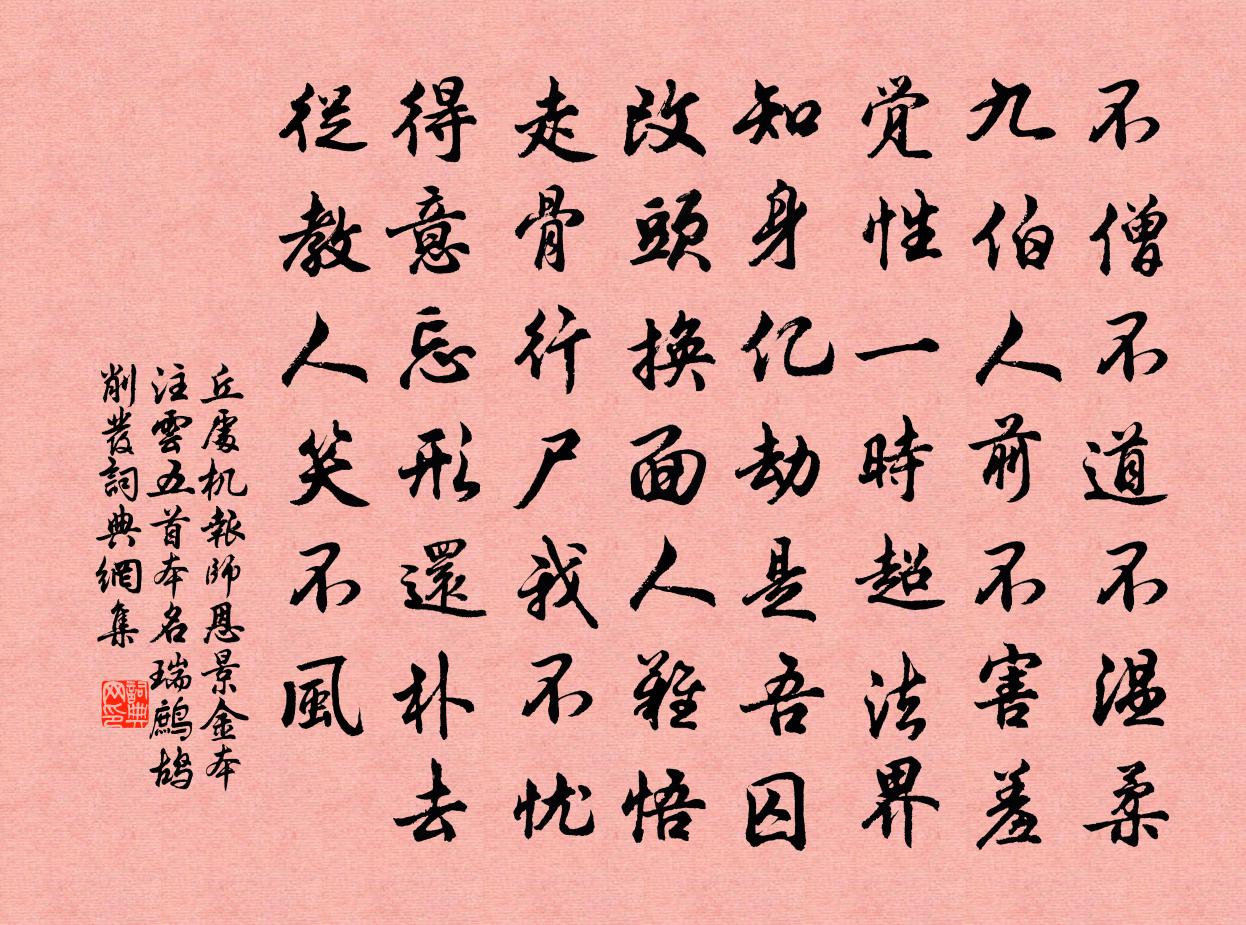 不僧不道不温柔
九伯人前不害羞
覚性一時超法界
知身亿劫是吾囚
改頭換面人難悟
走骨行尸我不忧
得意忘形還朴去
従教人笑不風
丘處机報師恩景金本
注雲五首本名瑞鷓鴣
削發詞典網集
詞典
网印